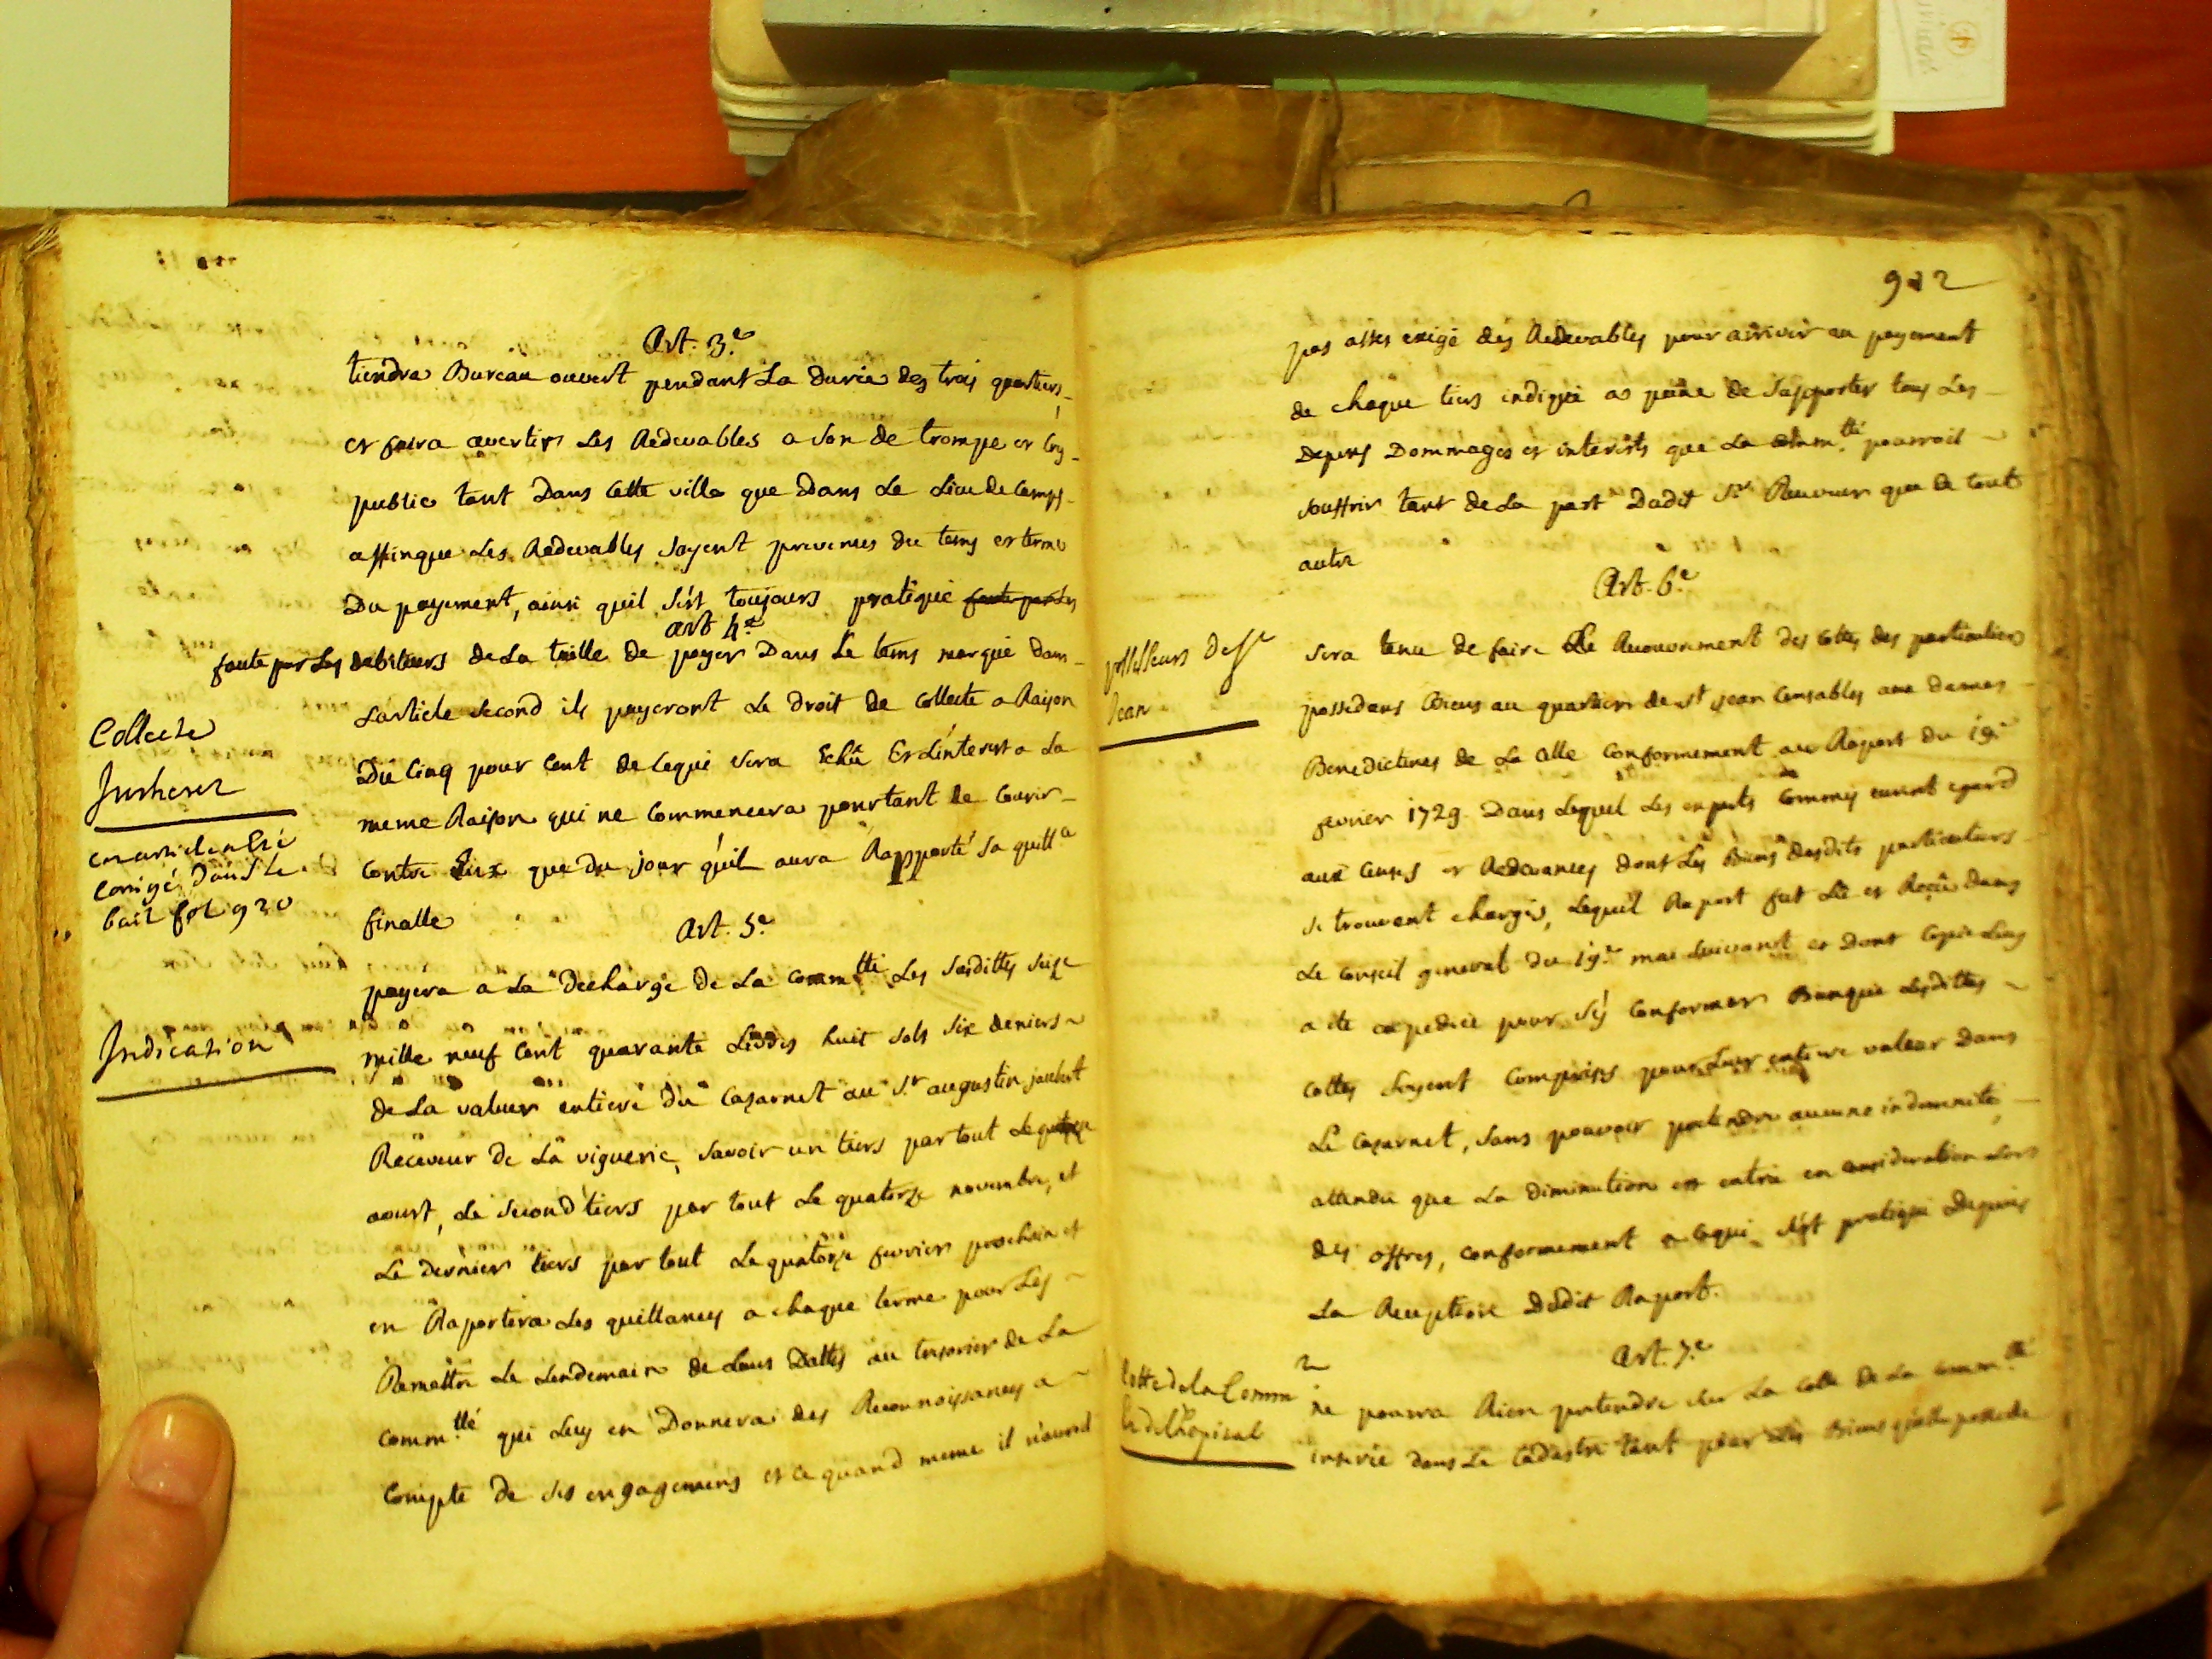 Art. 3.e
tiendra Bureau ouvert pendant La durée des trois quartiers
et faira avertir Les Redevables a son de trompe et cry
public tant Dans cette ville que Dans Le Lieu de Camps
affinque Les Redevables soyent prevenus du tems et terme
Du payement, ainsi quil s'est toujours pratiqué faute par Les
art 4.e
faute par Les debiteurs de La taille de payer Dans Le tems marqué dans
Larticle second ils payeront Le droit de Collecte a Raison
Du Cinq pour Cent de Cequi sera Echû Et L'interest a La
meme Raison qui ne Commencera pourtant de Courir
Contre Eux que du jour qu'il aura Rapporté sa quitt.e
finalle
Collecte
Interest
cet article a Esté
corrigé dans le
bail fol 920
Art. 5.e
payera a La Decharge de La Comm.tté Les susdittes seize
mille neuf Cent quarante Livres huit sols six deniers
de La valeur entiere du Cazarnet au S.r augustin joubert
Receveur de La viguerie, savoir un tiers par tout Le quinze
aoust, Le second tiers par tout Le quatorze novembre, et
Le dernier tiers par tout Le quatorze fevrier prochain et
en Raportera Les quittances a chaque terme pour Les
Remettre Le Lendemain de Leurs Dattes au tresorier de La
Comm.tté qui Luy en Donnera des Reconnoissances a
Compte de ses engagemens et ce quand meme il n'auroit
Indication
912
pas asses exigé des Redevables pour arriver au payement
de chaque tiers indiqué a peine de supporter tous Les
Depens Dommages et interets que La Comm.tté pourroit
souffrir tant de La part Dudit S.r Receveur que de tout
autre
Art. 6.e
possesseurs de St
Jean
sera tenu de faire Le Recouvrement des Cottes des particuliers
possedans Biens au quartier de St jean Censables aux dames
Benedictines de La Celle Conformement au Raport du 19.e
fevrier 1729. Dans Lequel Les experts Commis eurent egard
aux Censes et Redevances dont Les Biens desdits particuliers
se trouvent chargés, Lequel Raport fut Lû et Reçû dans
Le Conseil general du 19.e mai suivant et dont Copie Luy
a été expediée pour s'y Conformer Bienque Lesdittes
Cottes soyent Comprises pour Leur entiere valeur dans
Le Cazarnet, sans pouvoir pretendre aucune indemnité,
attendu que La diminution est entrée en Consideration Lors
des offres, Conformement a Cequi s'est pratiqué Depuis
La Reception Dudit Raport.
Art. 7.e
Cotte de la Comm
de l'hopital
ne pourra Rien pretendre sur La Cotte de La Comm.tté
inserée dans Le Cadastre tant pour Les Biens qu'elle possede